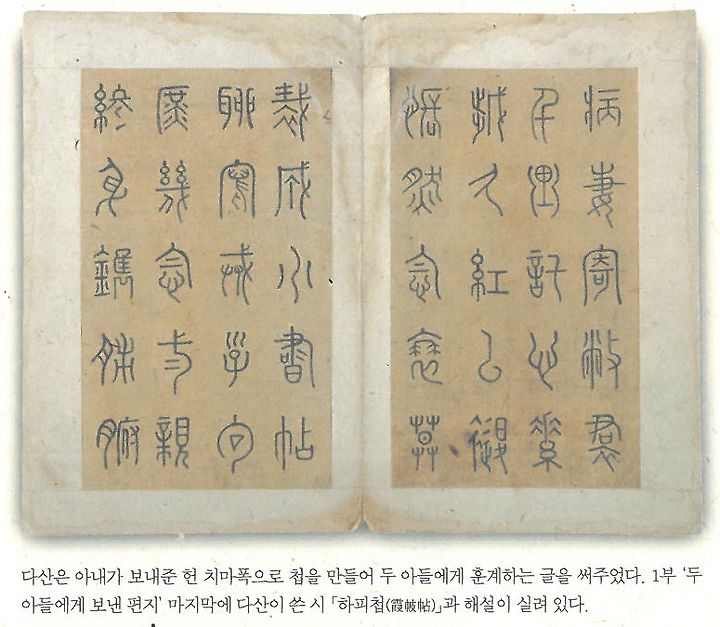 病妻寄敝裙
千里託心素
歲久紅已褪
悵然念衰暮
裁成小書帖
聊寫戒子句
庶幾念二親
終身鐫肺腑
다산은 아내가 보내준 헌 치마폭으로 첩을 만들어 두 아들에게 훈계하는 글을 써주었다. 1부 ‘두
아들에게 보낸 편지’ 마지막에 다산이 쓴 시 「하피첩(霞帔帖)」과 해설이 실려 있다.